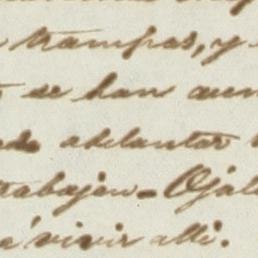 trampas, y
se han aum
adelantar
trabajen = Ojal
á vivir alli.